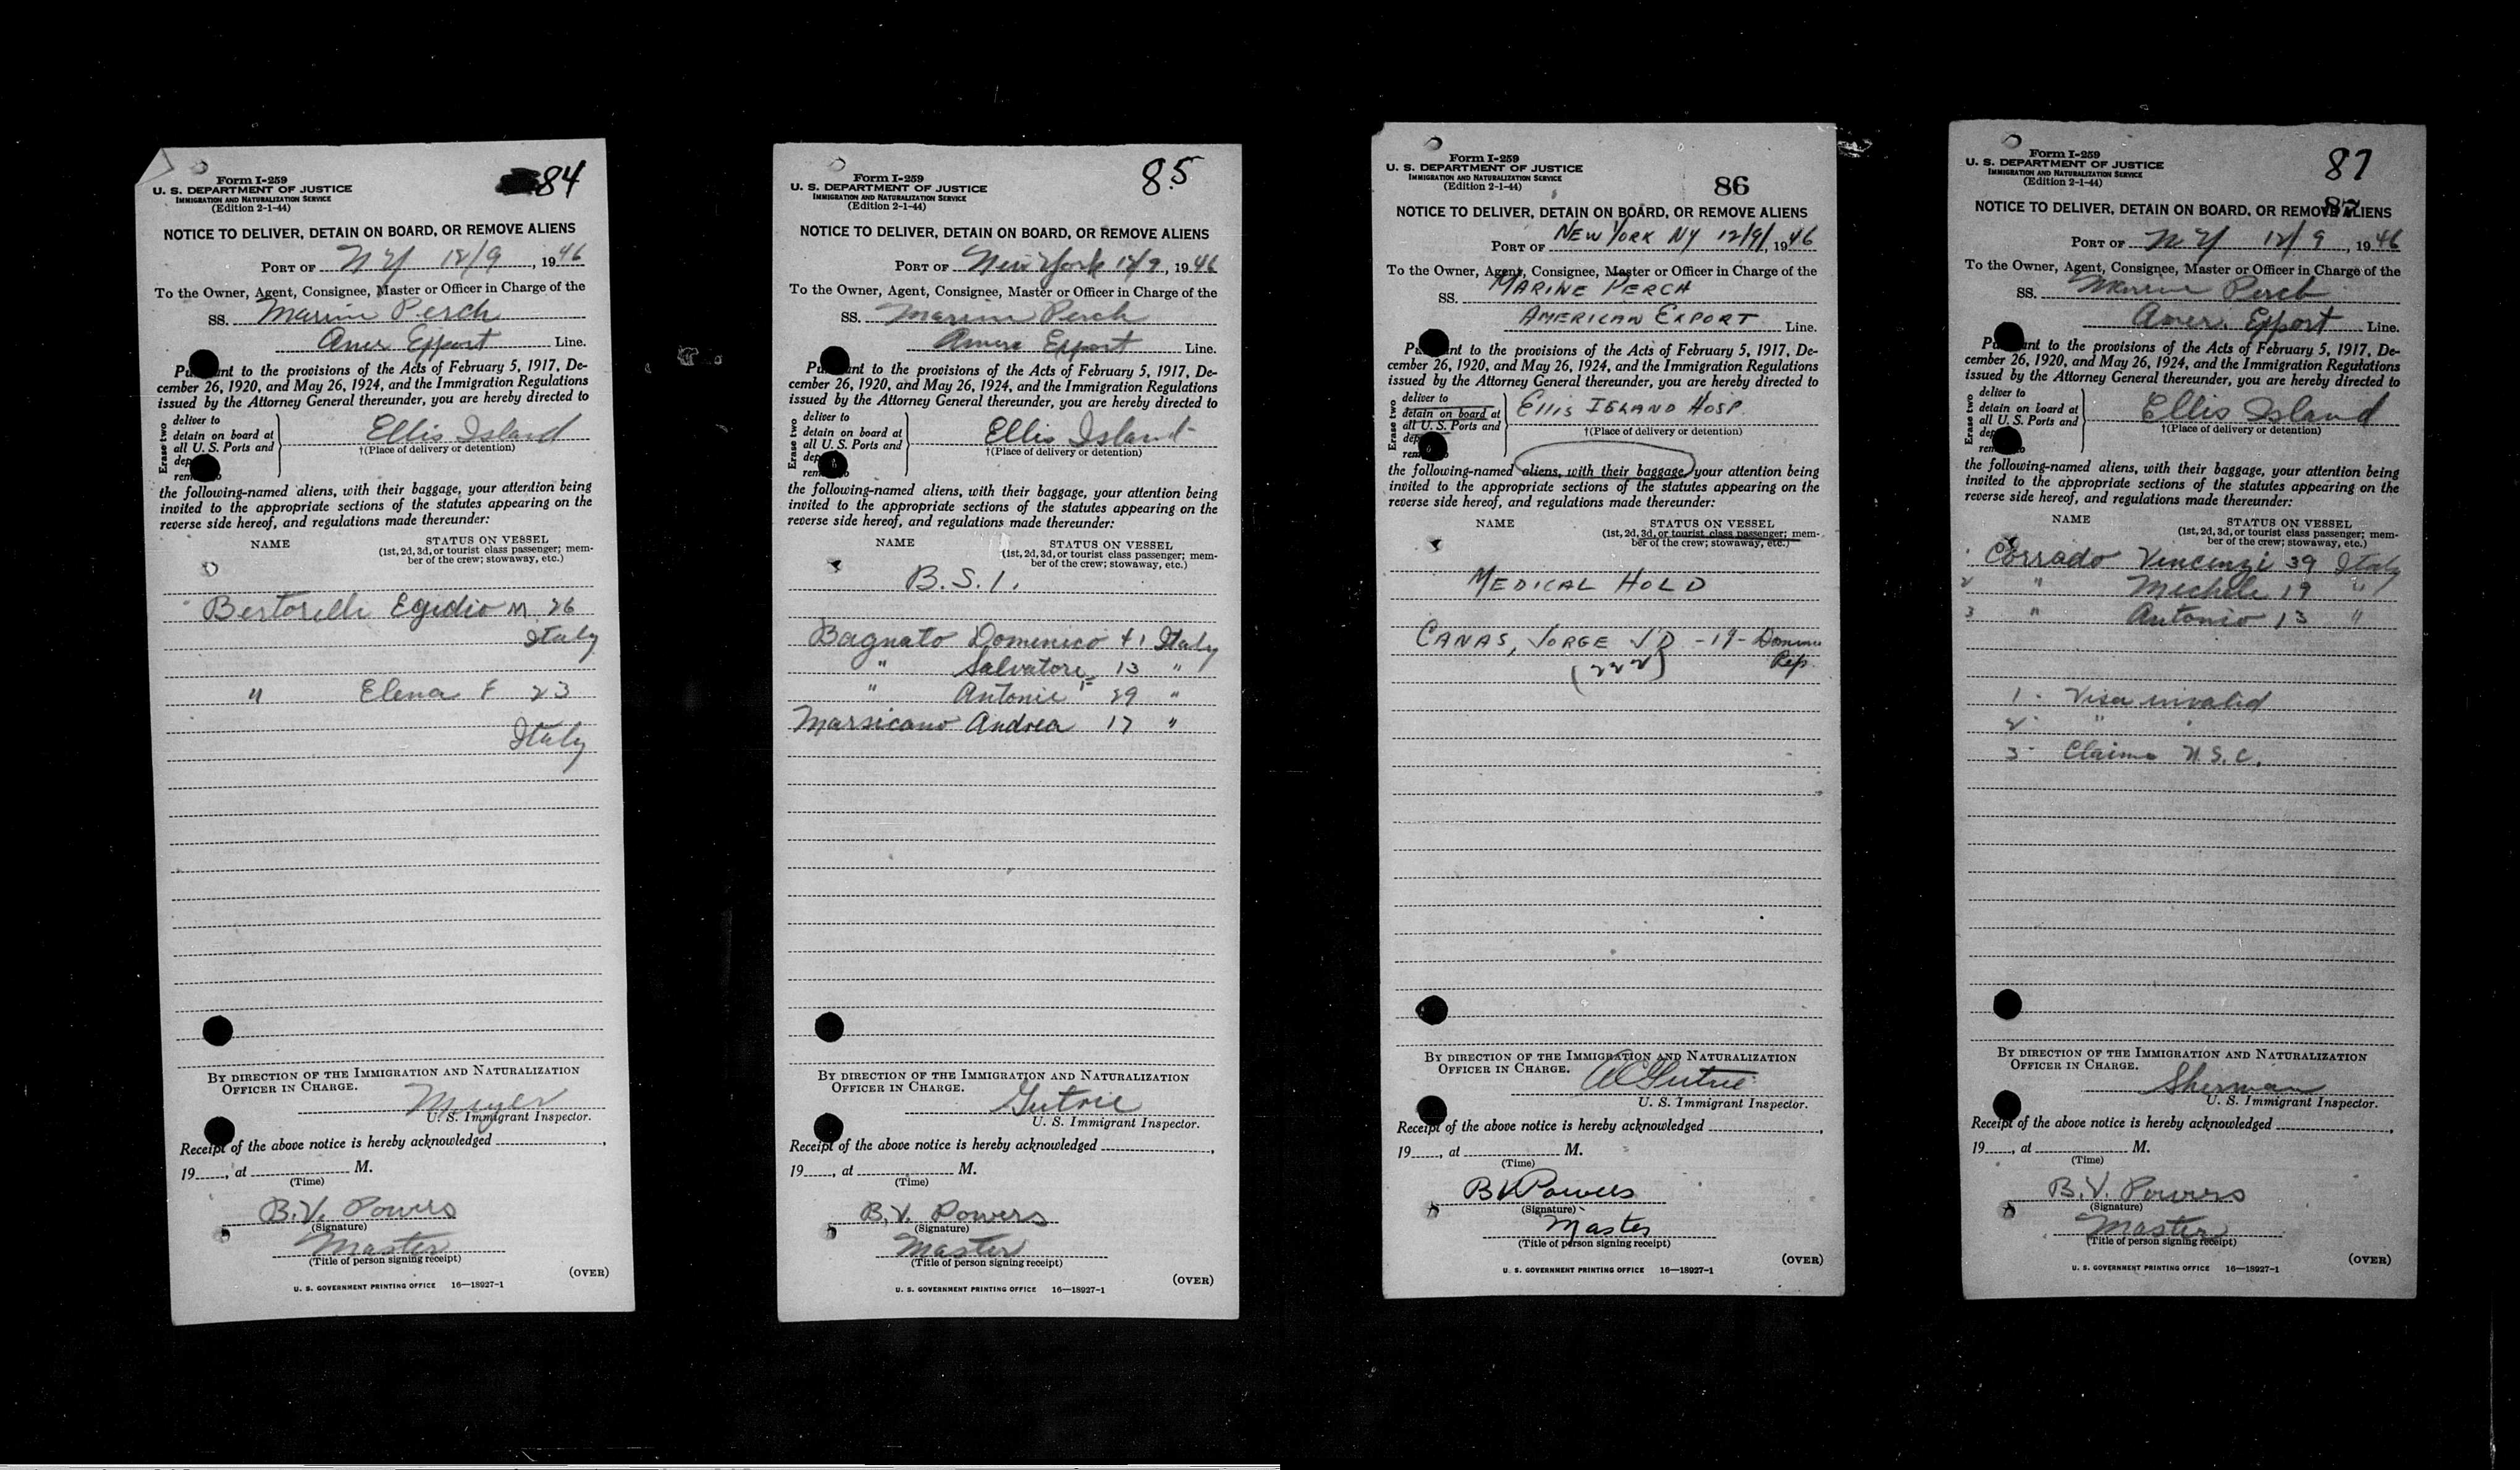 84
Form I-259
U. S. DEPARTMENT OF JUSTICE
IMMIGRATION AND NATURALIZATION SERVICE
(Edition 2-1-44)
NOTICE TO DELIVER, DETAIN ON BOARD, OR REMOVE ALIENS
PORT OF N Y 12/9, 1946
To the Owner, Agent, Consignee, Master or Officer in Charge of the
SS. Marine Perch
Amer Export Line.
Pursuant to the provisions of the Acts of February 5, 1917, De-
cember 26, 1920, and May 26, 1924, and the Immigration Regulations
issued by the Attorney General thereunder, you are hereby directed to
Erase two
deliver to
detain on board at
all U. S. Ports and
dep
rem
Ellis Island
†(Place of delivery or detention)
the following-named aliens, with their baggage, your attention being
invited to the appropriate sections of the statutes appearing on the
reverse side hereof, and regulations made thereunder:
NAME STATUS ON VESSEL
(1st, 2d, 3d, or tourist class passenger; mem-
ber of the crew; stowaway, etc.)
Bertorelli Egidio M 26
Italy
" Elena F 23
Italy
BY DIRECTION OF THE IMMIGRATION AND NATURALIZATION
OFFICER IN CHARGE.
Meyer
U. S. Immigrant Inspector.
Receipt of the above notice is hereby acknowledged
19, at M.
(Time)
B.V. Powers
(Signature)
Master
(Title of person signing receipt)
(OVER)
U. S. GOVERNMENT PRINTING OFFICE 16—18927-1
85
Form I-259
U. S. DEPARTMENT OF JUSTICE
IMMIGRATION AND NATURALIZATION SERVICE
(Edition 2-1-44)
NOTICE TO DELIVER, DETAIN ON BOARD, OR REMOVE ALIENS
PORT OF New York 12/9, 1946
To the Owner, Agent, Consignee, Master or Officer in Charge of the
SS. Marine Perch
Amer Export Line.
Pursuant to the provisions of the Acts of February 5, 1917, De-
cember 26, 1920, and May 26, 1924, and the Immigration Regulations
issued by the Attorney General thereunder, you are hereby directed to
Erase two
deliver to
detain on board at
all U. S. Ports and
dep
rem
Ellis Island
†(Place of delivery or detention)
the following-named aliens, with their baggage, your attention being
invited to the appropriate sections of the statutes appearing on the
reverse side hereof, and regulations made thereunder:
NAME STATUS ON VESSEL
(1st, 2d, 3d, or tourist class passenger; mem-
ber of the crew; stowaway, etc.)
B.S.I.
Bagnato Domenico 41 Italy
" Salvatore 13 "
" Antonie F 29 "
Marsicano Andrea 17 "
BY DIRECTION OF THE IMMIGRATION AND NATURALIZATION
OFFICER IN CHARGE.
Gutrie
U. S. Immigrant Inspector.
Receipt of the above notice is hereby acknowledged
19, at M.
(Time)
B.V. Powers
(Signature)
Master
(Title of person signing receipt)
(OVER)
U. S. GOVERNMENT PRINTING OFFICE 16—18927-1
86
Form I-259
U. S. DEPARTMENT OF JUSTICE
IMMIGRATION AND NATURALIZATION SERVICE
(Edition 2-1-44)
NOTICE TO DELIVER, DETAIN ON BOARD, OR REMOVE ALIENS
PORT OF NEW YORK NY 12/9/, 1946
To the Owner, Agent, Consignee, Master or Officer in Charge of the
SS. MARINE PERCH
AMERICAN EXPORT Line.
Pursuant to the provisions of the Acts of February 5, 1917, De-
cember 26, 1920, and May 26, 1924, and the Immigration Regulations
issued by the Attorney General thereunder, you are hereby directed to
Erase two
deliver to
detain on board at
all U. S. Ports and
dep
rem
ELLIS ISLAND HOSP.
†(Place of delivery or detention)
the following-named aliens, with their baggage, your attention being
invited to the appropriate sections of the statutes appearing on the
reverse side hereof, and regulations made thereunder:
NAME STATUS ON VESSEL
(1st, 2d, 3d, or tourist class passenger; mem-
ber of the crew; stowaway, etc.)
MEDICAL HOLD
CANAS, JORGE J'D - 19 - Domin
(222) Rep.
BY DIRECTION OF THE IMMIGRATION AND NATURALIZATION
OFFICER IN CHARGE.
Gutrie
U. S. Immigrant Inspector.
Receipt of the above notice is hereby acknowledged
19, at M.
(Time)
BV Powers
(Signature)
Master
(Title of person signing receipt)
(OVER)
U. S. GOVERNMENT PRINTING OFFICE 16—18927-1
87
Form I-259
U. S. DEPARTMENT OF JUSTICE
IMMIGRATION AND NATURALIZATION SERVICE
(Edition 2-1-44)
87
NOTICE TO DELIVER, DETAIN ON BOARD, OR REMOVE ALIENS
PORT OF N Y 12/9, 1946
To the Owner, Agent, Consignee, Master or Officer in Charge of the
SS. Marine Perch
Amer. Export Line.
Pursuant to the provisions of the Acts of February 5, 1917, De-
cember 26, 1920, and May 26, 1924, and the Immigration Regulations
issued by the Attorney General thereunder, you are hereby directed to
Erase two
deliver to
detain on board at
all U. S. Ports and
dep
rem
Ellis Island
†(Place of delivery or detention)
the following-named aliens, with their baggage, your attention being
invited to the appropriate sections of the statutes appearing on the
reverse side hereof, and regulations made thereunder:
NAME STATUS ON VESSEL
(1st, 2d, 3d, or tourist class passenger; mem-
ber of the crew; stowaway, etc.)
Corrado Vincenzi 39 Italy
2 " Michele 19 "
3 " Antonio 13 "
1 - Visa invalid
2 - " "
3 - Claims U.S.C.
BY DIRECTION OF THE IMMIGRATION AND NATURALIZATION
OFFICER IN CHARGE.
Sherman
U. S. Immigrant Inspector.
Receipt of the above notice is hereby acknowledged
19, at M.
(Time)
B.V. Powers
(Signature)
Master
(Title of person signing receipt)
(OVER)
U. S. GOVERNMENT PRINTING OFFICE 16—18927-1